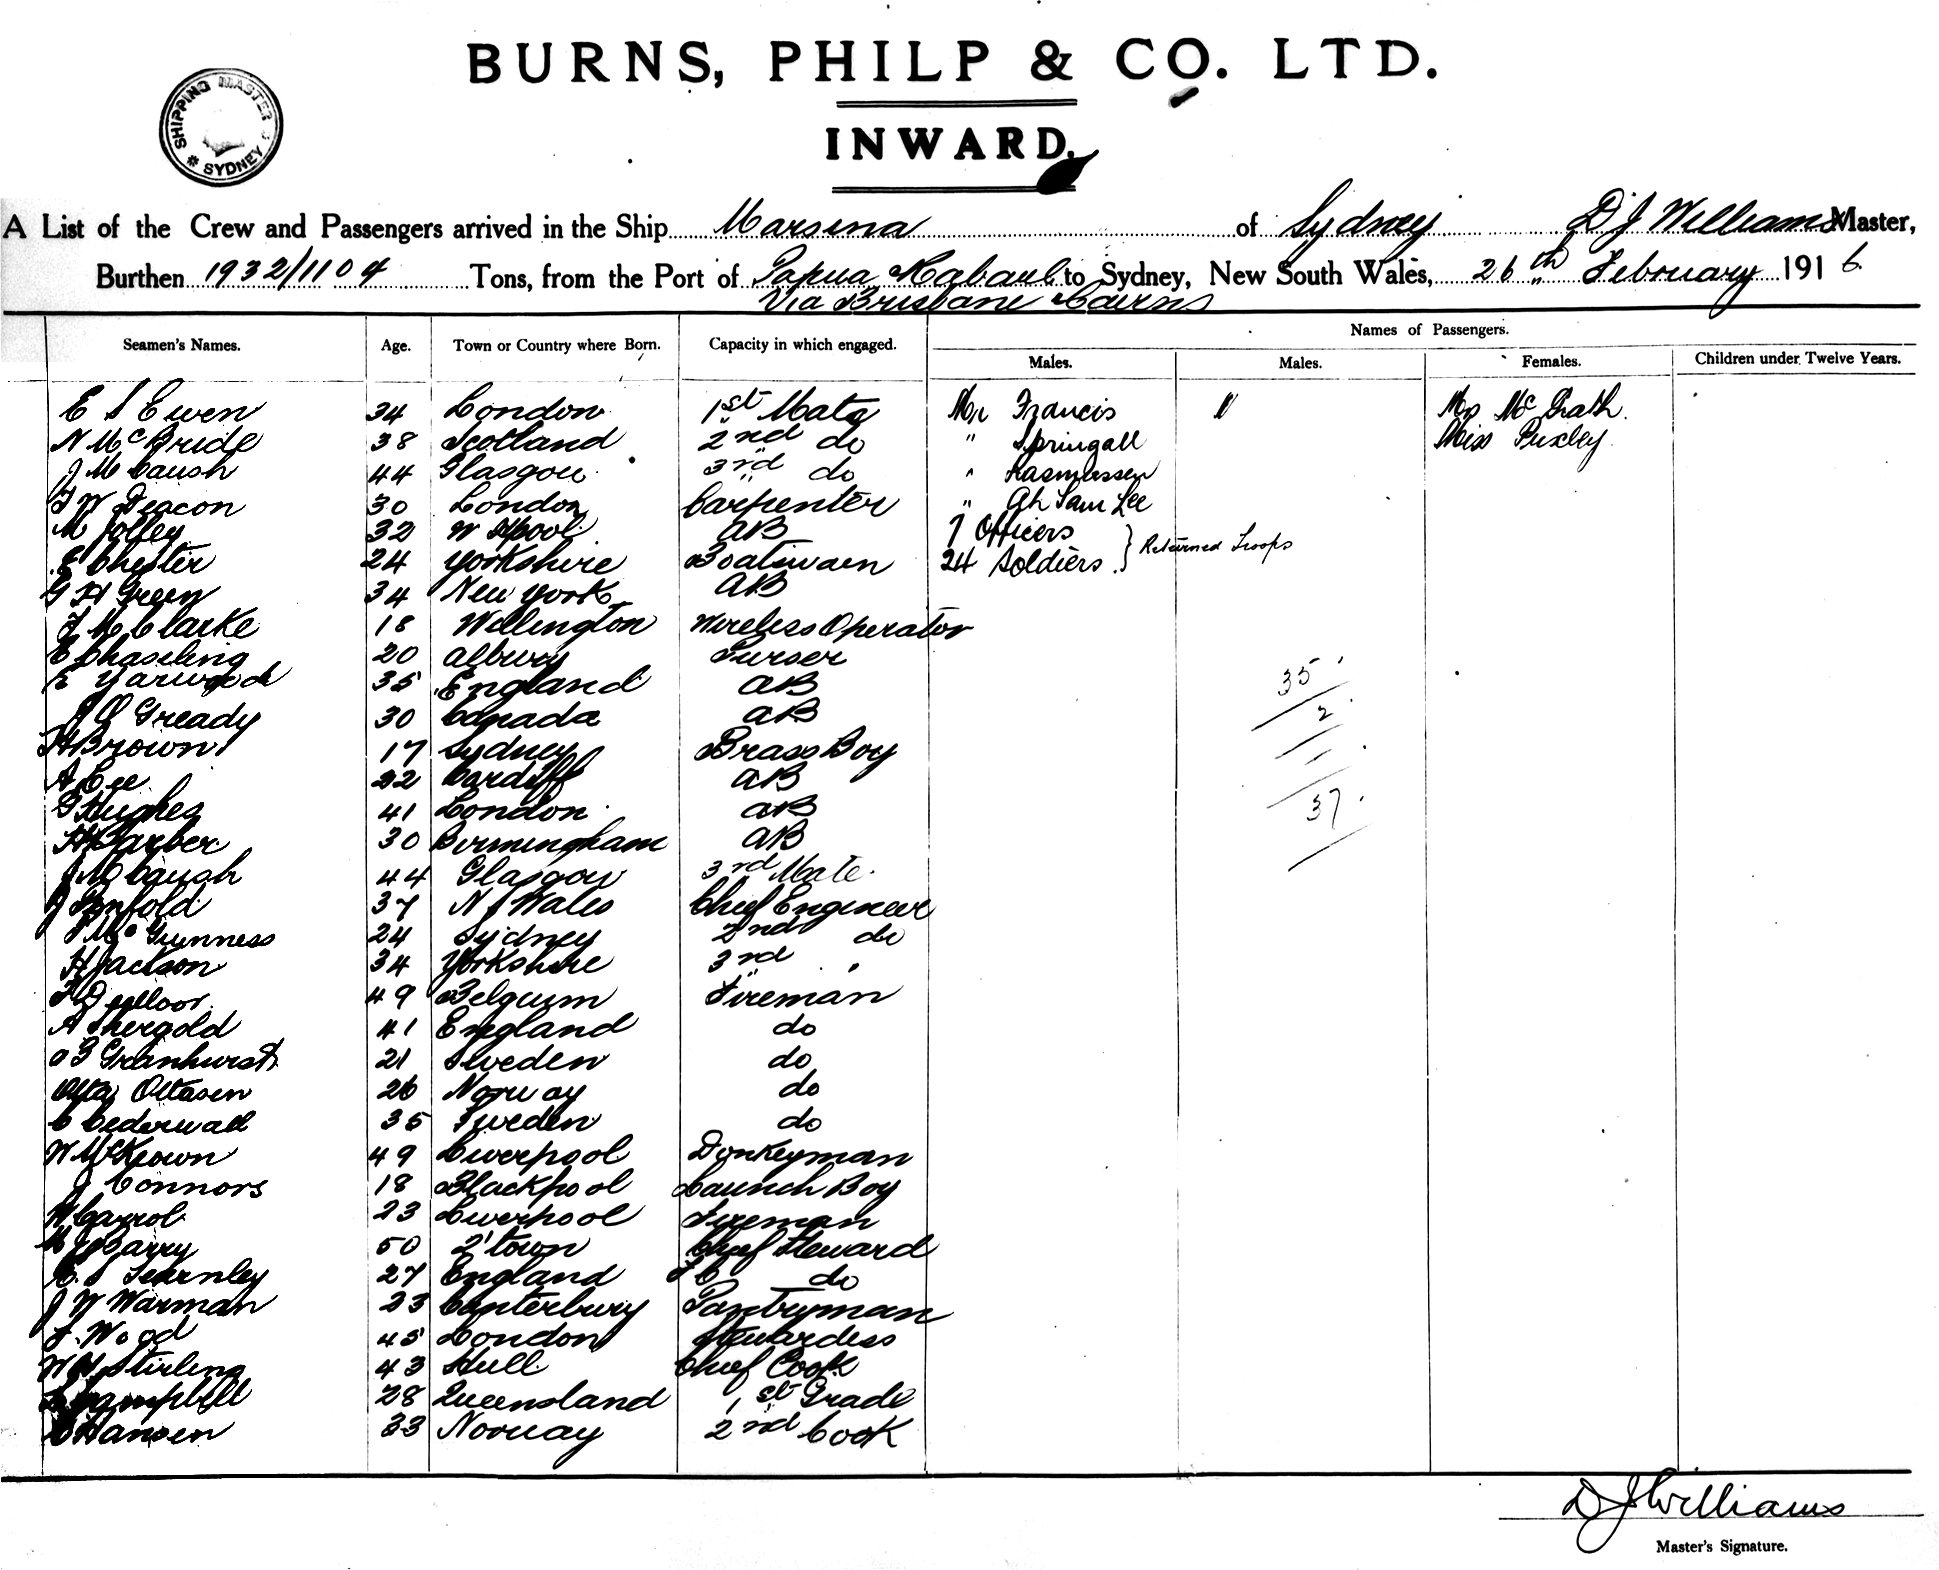 BURNS, PHILP & CO. LTD.
INWARD.
SHIPPING MASTER SYDNEY
A List of the Crew and Passengers arrived in the Ship Marsina of Sydney D J Williams Master,
Burthen 1932/1104 Tons, from the Port of Papua Rabaul to Sydney, New South Wales, 26th February 1916
Via Brisbane Cairns
Names of Passengers.
Seamen's Names. Age. Town or Country where Born. Capacity in which engaged. Males. Males. Females. Children under Twelve Years.
E S Ewen 34 London 1st Mate Mr Francis " Mrs McGrath.
N McBride 38 Scotland 2nd do " Springall Miss Puxley.
J M Caush 44 Glasgow 3rd do " Rasmussen
F W Deacon 30 London Carpenter " Ah Sam Lee
M Jolley 32 W Hpool AB 7 Officers
E Chester 24 Yorkshire Boatswain 24 Soldiers } Returned Troops
G H Green 34 New York AB
J M Clarke 18 Wellington Wireless Operator
E Chaseling 20 Albury Purser
E Yarwood 35 England AB 35
J O Gready 30 Canada AB 2
H Brown 17 Sydney Brass Boy
A Lee 22 Cardiff AB
G Hughes 41 London AB 37
H Barber 30 Birmingham AB
J M Caush 44 Glasgow 3rd Mate.
J Penfold 37 N S Wales Chief Engineer
J McGunness 24 Sydney 2nd do
H Jackson 34 Yorkshire 3rd "
49 Belgium Fireman
A Shergold 41 England do
O G Granhurst 21 Sweden do
Ottasen 26 Norway do
C Cederwall 35 Sweden do
W McKeown 49 Liverpool Donkeyman
J Connors 18 Blackpool Launch Boy
W Carrol 23 Liverpool Fireman
Barry 50 Q'town Chief Steward
S Fearnley 27 England do
J W Warman 23 Canterbury Pantryman
F. Wood 45 London Stewardess
W H Stirling 43 Hull Chief Cook
Campbell 28 Queensland 1st Grade
C Hansen 33 Norway 2nd Cook
D J Williams
Master's Signature.